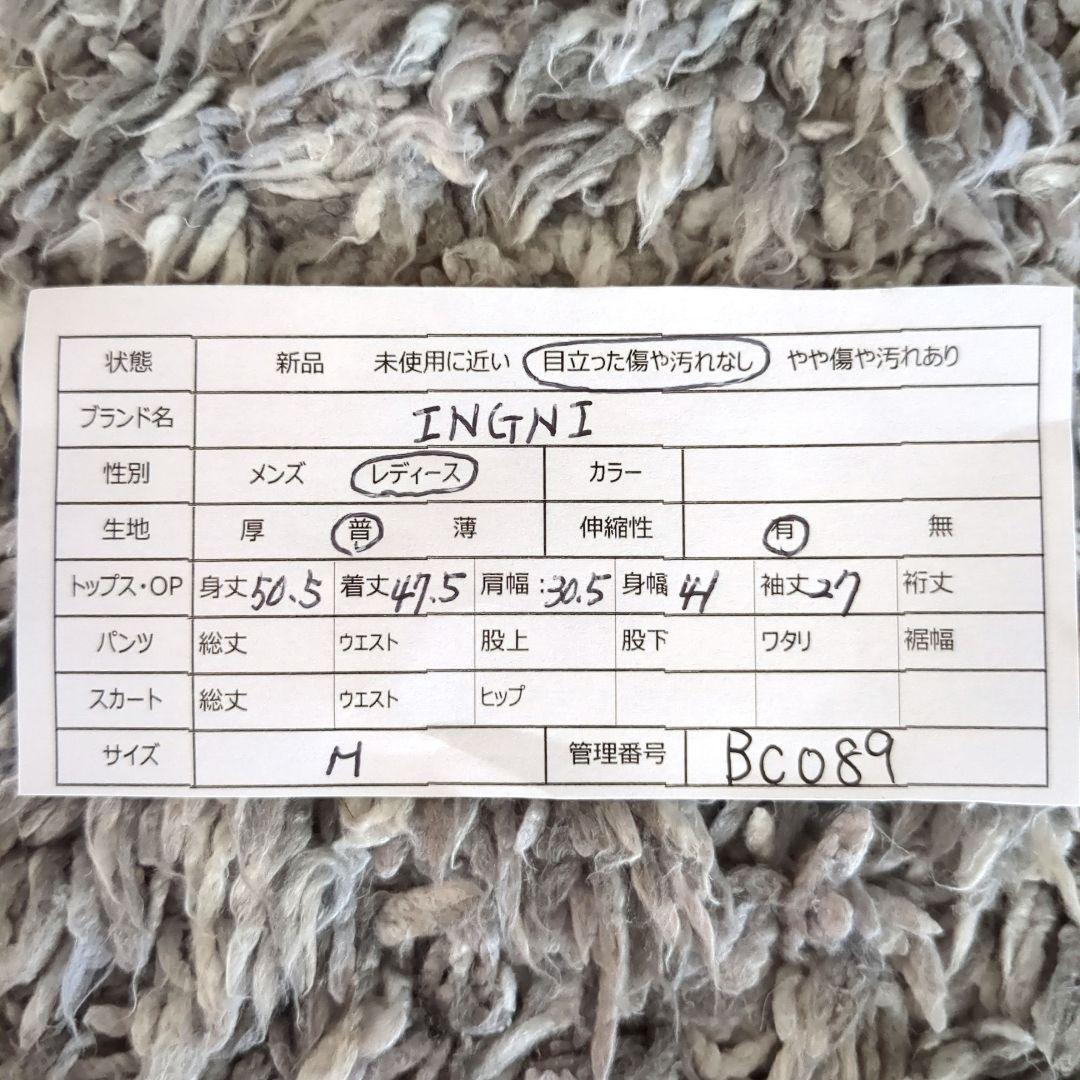 状態 新品 未使用に近い 目立った傷や汚れなし やや傷や汚れあり
ブランド名 INGNI
性別 メンズ レディース カラー
生地 厚 普 薄 伸縮性 有 無
トップス・OP 身丈50.5 着丈47.5 肩幅:30.5 身幅41 袖丈27 裄丈
パンツ 総丈 ウエスト 股上 股下 ワタリ 裾幅
スカート 総丈 ウエスト ヒップ
サイズ M 管理番号 BC089